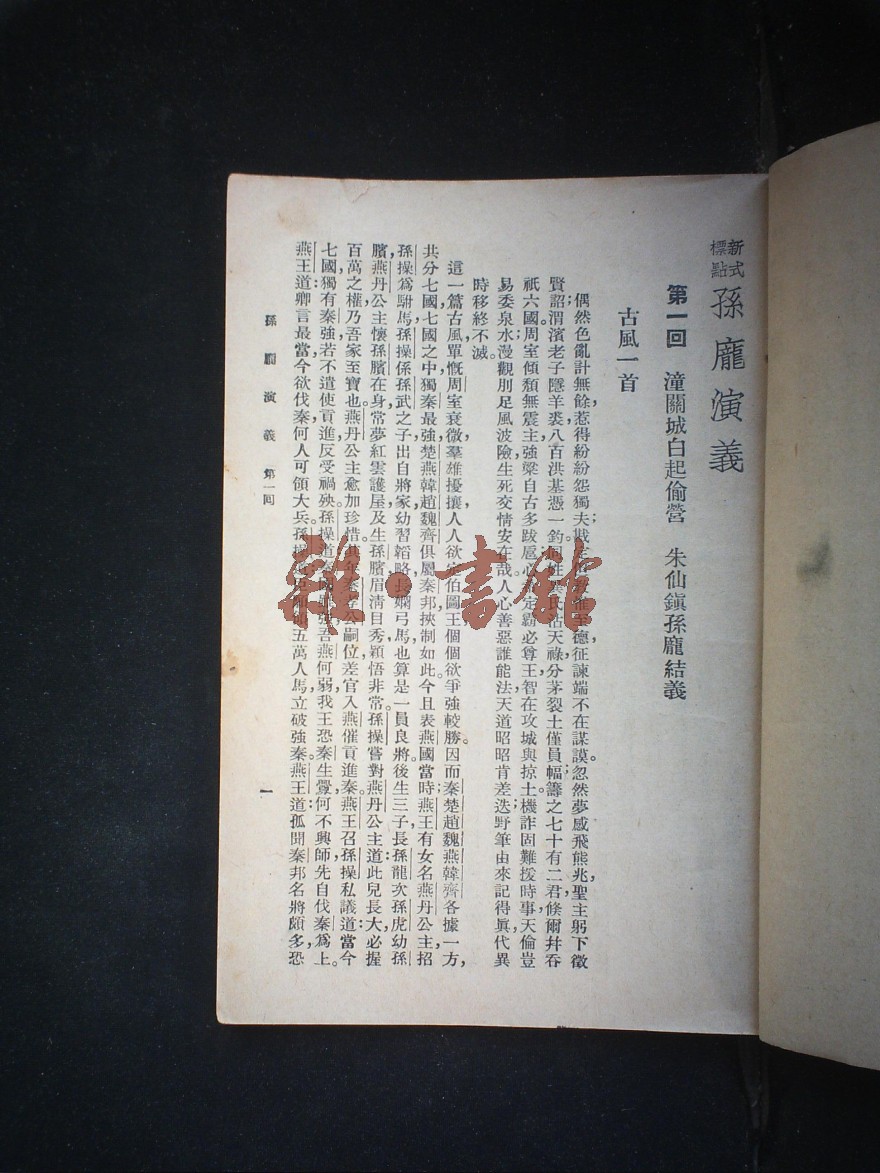 新式標點 孫龐演義
第一回 潼關城白起偷營 朱仙鎮孫龐結義
古風一首
偶然色亂計無餘，惹得紛紛怨獨夫；戡 至德征諫端不在謀謨。忽然夢感飛熊兆，聖主躬下徵
賢詔；渭濱老子隱羊裘，八百洪基憑一釣。同姓 天祿，分茅裂土僅員幅；籌之七十有二君，倏爾幷吞
祇六國。周室傾頹無震主，強梁自古多跋扈；心 定霸必尊王，智在攻城與掠土。機詐固難援時事，天倫豈
易委泉水；漫觀刖足風波險，生死交情安在哉。人心善惡誰能法，天道昭昭肯差迭；野筆由來記得眞，代異
時移終不滅。
這一篇古風單慨周室衰微，羣雄擾攘，人人欲定伯圖王，個個欲爭強較勝。因而秦楚趙魏燕韓齊各據一方，
共分七國。七國之中，獨秦最強，楚燕韓趙魏齊俱屬秦邦挾制。如此今且表燕國當時，燕王有女名燕丹公主，招
孫操爲駙馬。孫操係孫武之子，出自將家，幼習韜略，長嫻弓馬，也算是一員良將。後生三子：長孫龍，次孫虎，幼孫
臏。燕丹公主懷孫臏在身，常夢紅雲護屋；及生孫臏，眉清目秀，穎悟非常。孫操嘗對燕丹公主道：此兒長大，必握
百萬之權，乃吾家至寶也。燕丹公主愈加珍惜。其年秦孝公嗣位，差官入燕催貢進秦。燕王召孫操私議道：當今
七國，獨有秦強，若不遣使貢進，反受禍殃。孫操道：秦國 強，吾燕何弱，我王恐秦生釁，何不興師先自伐秦爲上。
燕王道：卿言最當，今欲伐秦，何人可領大兵。孫操道： 五萬人馬，立破強秦。燕王道：孤聞秦邦名將頗多，恐
孫龐演義 第一回
一
雜·書館